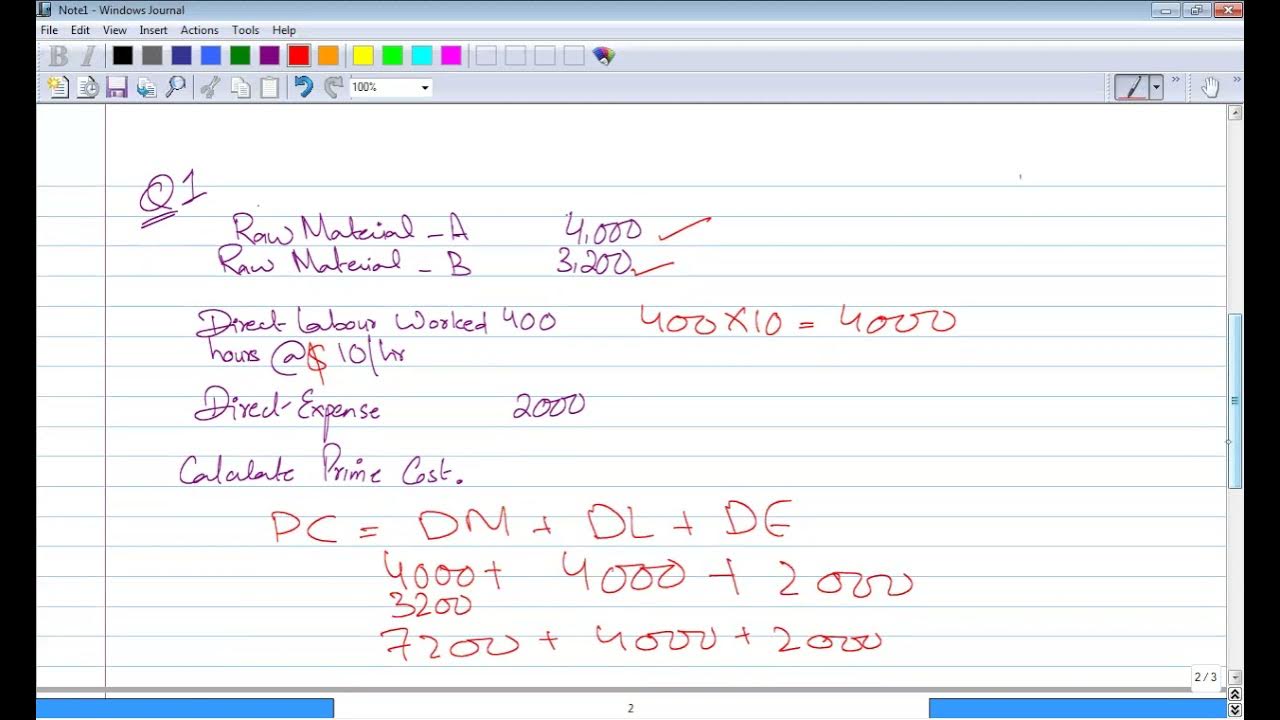 Note1 - Windows Journal
File Edit View Insert Actions Tools Help
B I
100%
Q1
Raw Material - A 4,000
Raw Material - B 3,200
Direct Labour Worked 400 400 X 10 = 4000
hours @ $ 10/hr
Direct Expense 2000
Calculate Prime Cost.
PC = DM + DL + DE
4000 + 4000 + 2000
3200
7200 + 4000 + 2000
2 / 3
2